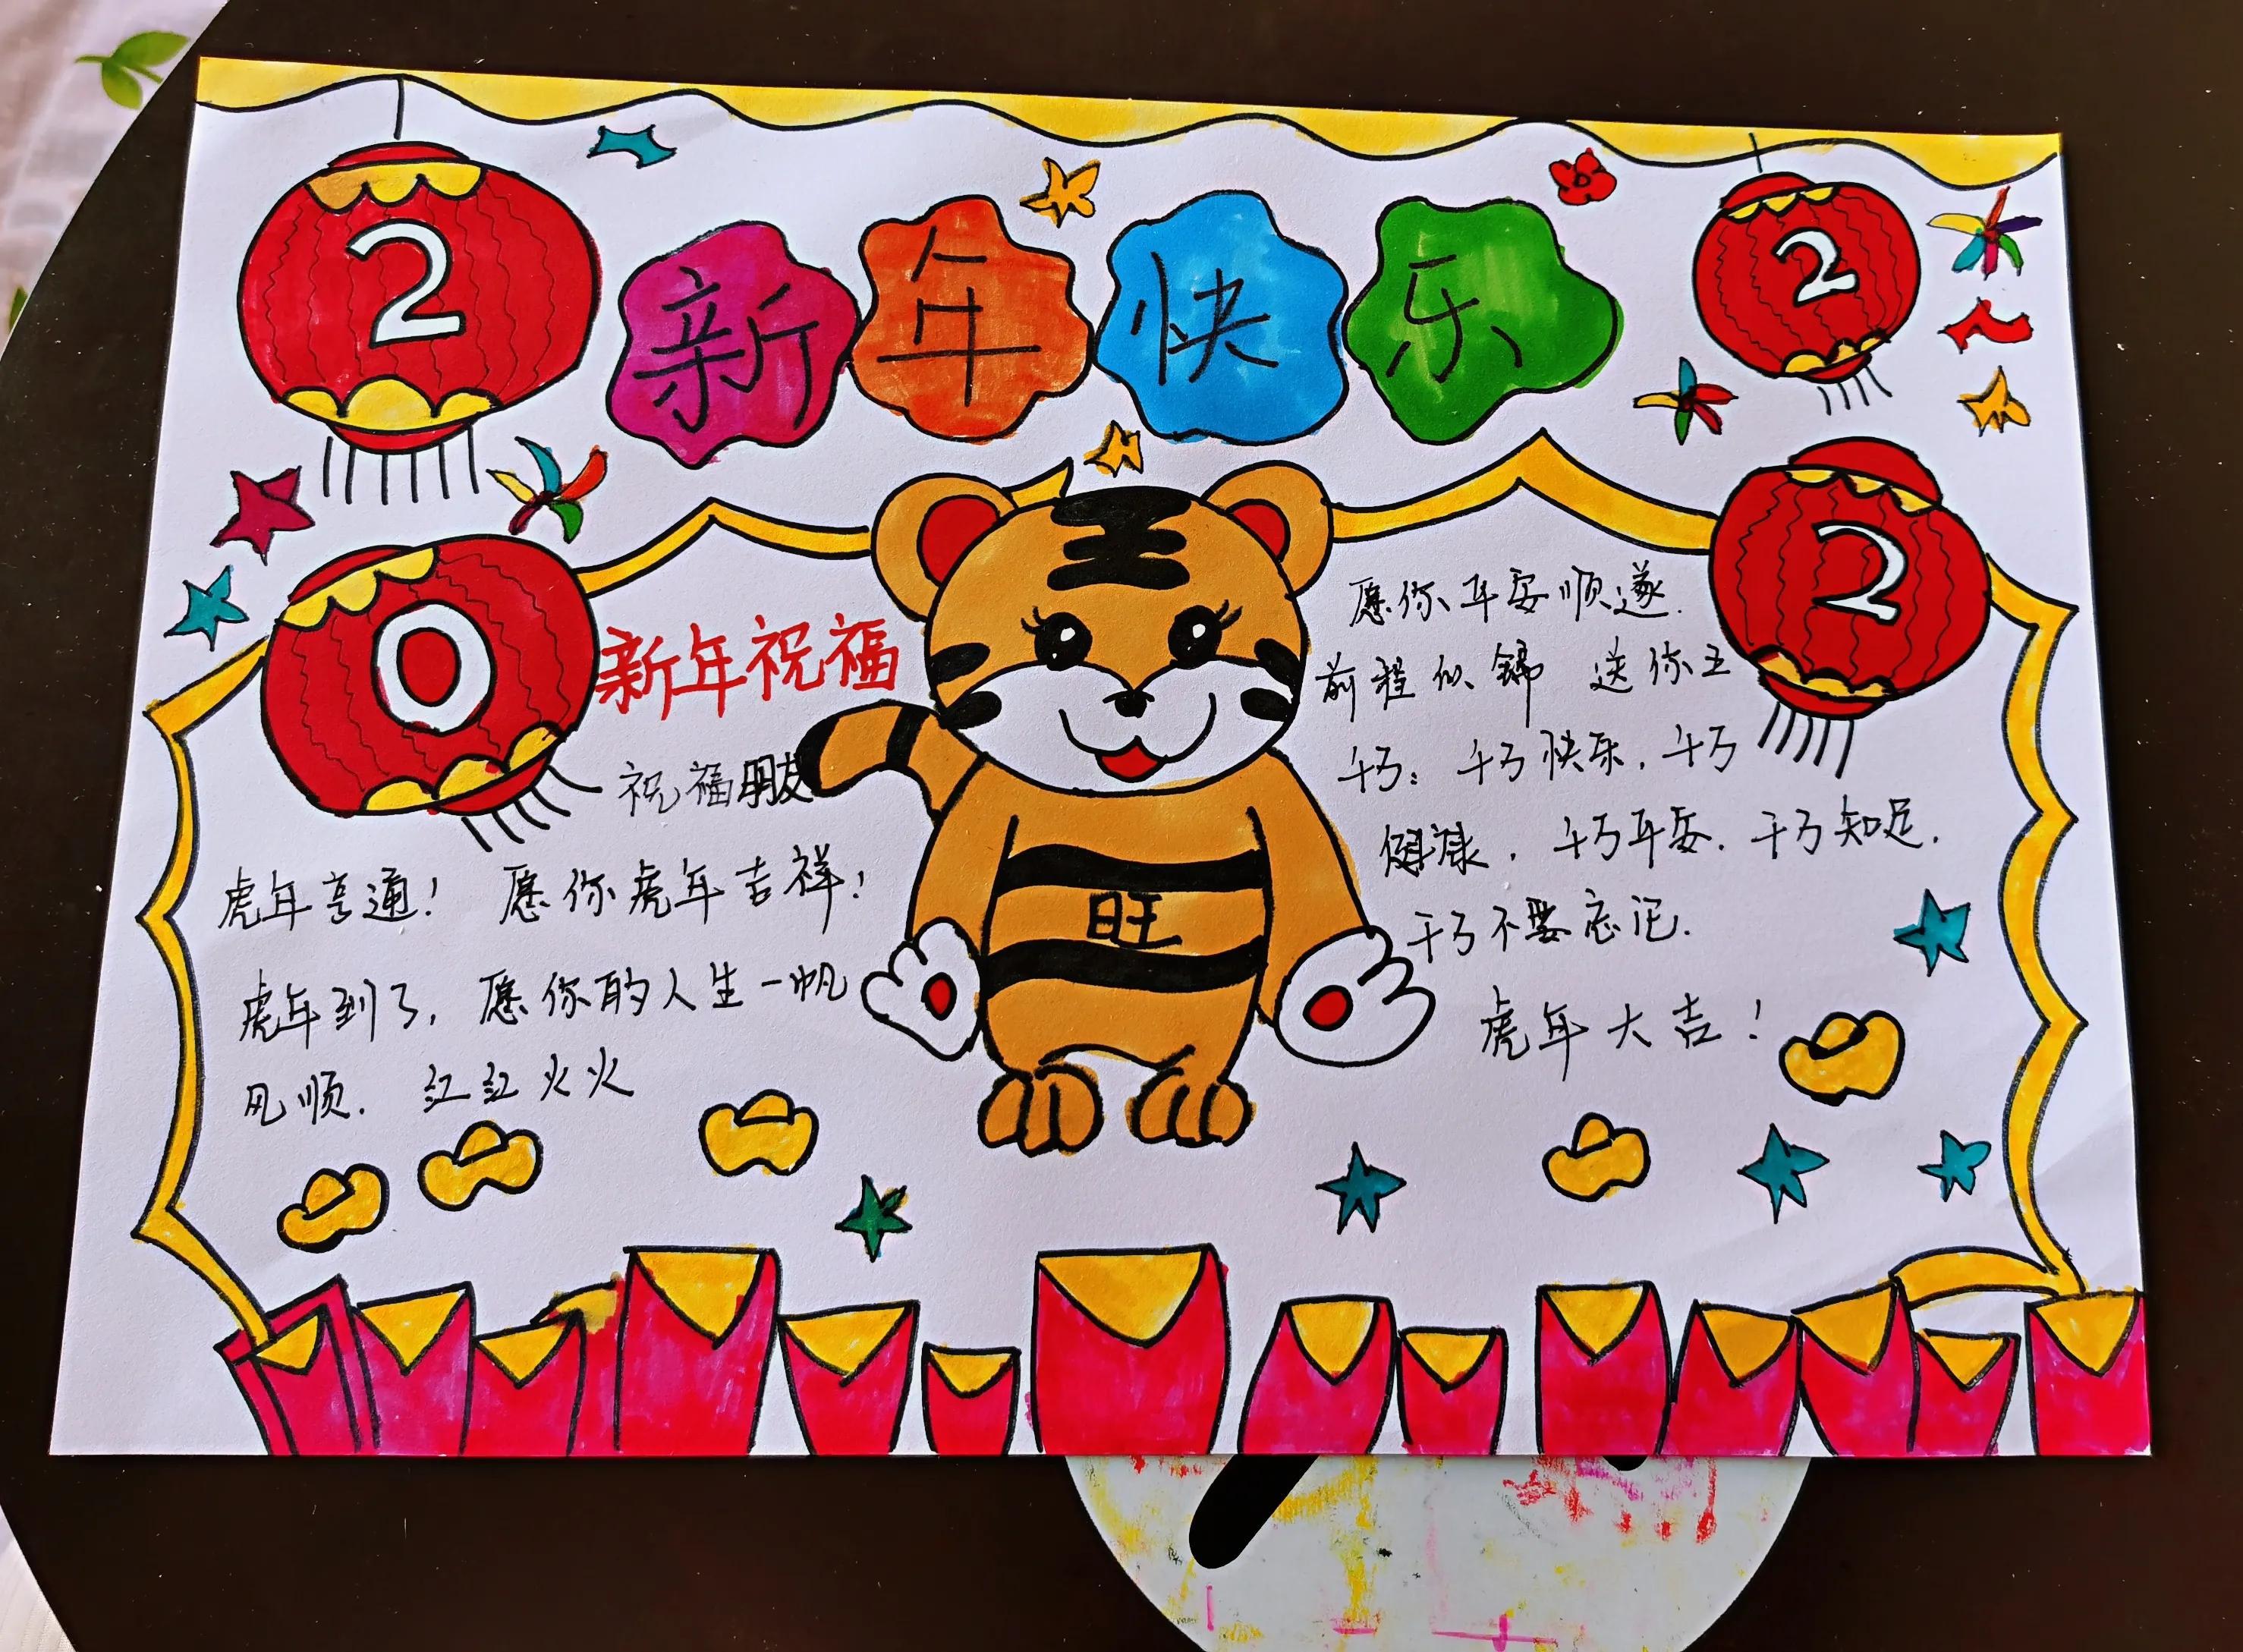 2
新年快乐
2
0
2
王
新年祝福
祝福朋友
虎年亨通! 愿你虎年吉祥!
虎年到了,愿你的人生一帆
风顺. 红红火火
旺
愿你平安顺遂.
前程似锦 送你五
千万: 千万快乐,千万
健康,千万平安.千万知足.
千万不要忘记.
虎年大吉!